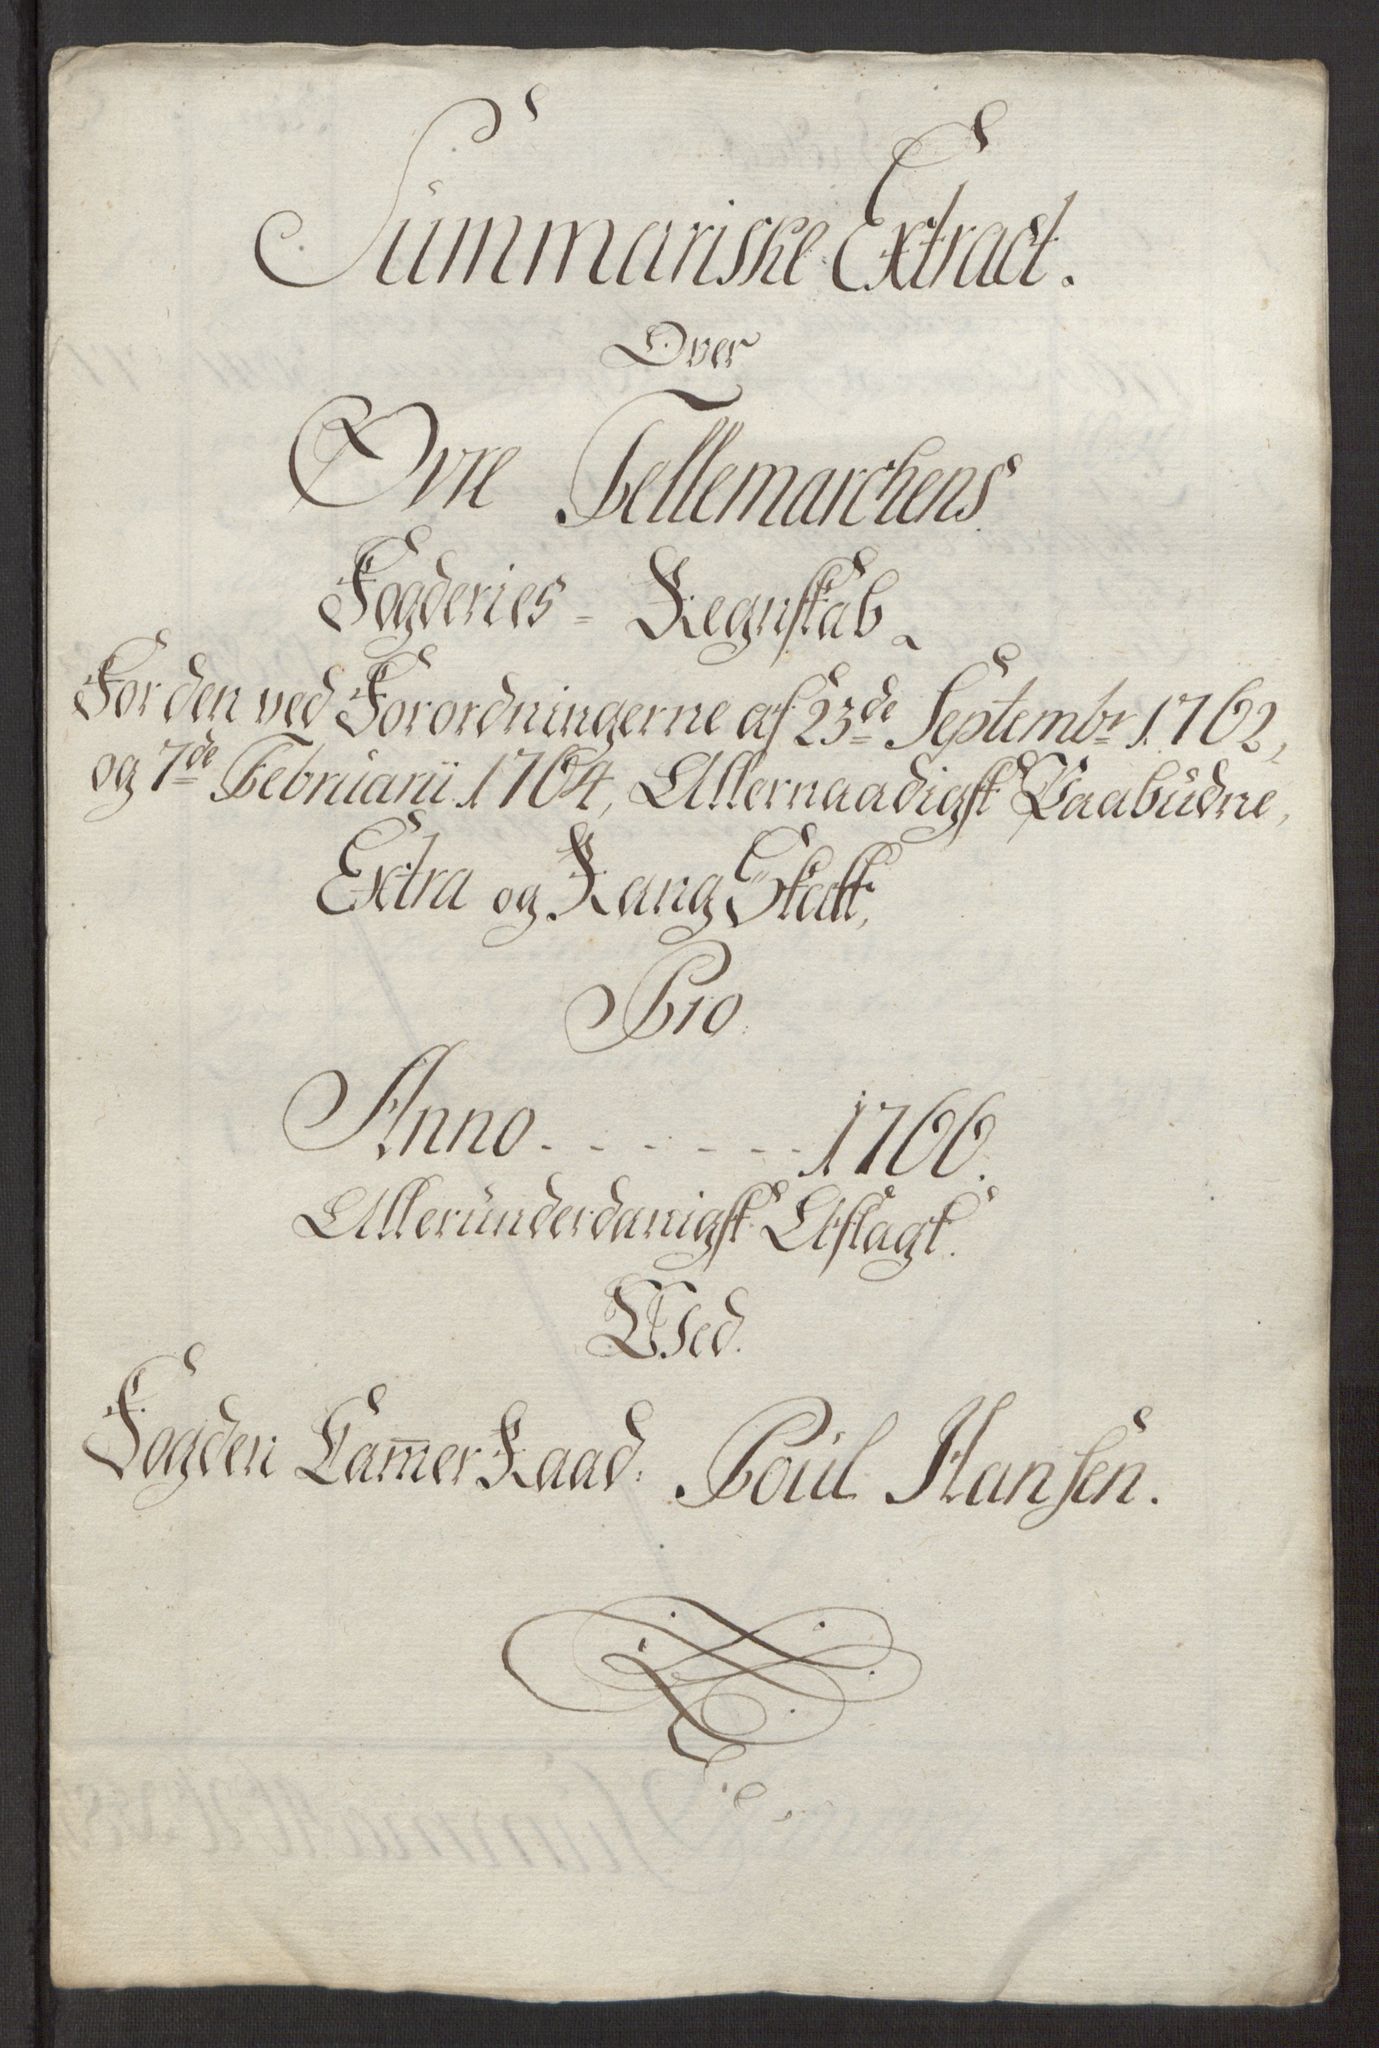 Summariske Extract.
Over
Øvre Tellemarchens
Fogderies = Regnskab
For den ved Forordningerne af 23de Septembr 1762,
og 7de Februarii 1764, Allernaadigst Paabudne,
Extra og Rang Skatt,
Pro
Anno - - - - - - 1766.
Allerunderdanigst Aflagt.
Ved.
Fogden Cam̅er Raad: Poul Hansen.